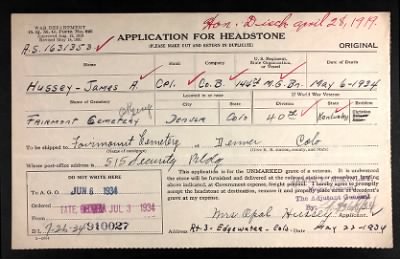 WAR DEPARTMENT
Hon. Disch april 28, 1919.
A.S. 1631353
APPLICATION FOR HEADSTONE
(PLEASE MAKE OUT AND RETURN IN DUPLICATE)
ORIGINAL
Name Rank Company U. S. Regiment, State Organization, or Vessel Date of Death
Hussey-James A. Cpl. Co. B. 146th M.G. Bn. May 6-1934
Name of Cemetery Located in or near If World War Veteran
City State Division State
Fairmont Cemetery Denver Colo 40th
To be shipped to: Fairmount Cemetery, Denver Colo
Whose post-office address is: 515 Security Bldg
DO NOT WRITE HERE
This application is for the UNMARKED grave of a veteran. It is understood the stone will be furnished and delivered at the railroad station or steamboat landing above indicated, at Government expense, freight prepaid. I hereby agree to promptly accept the headstone at destination, remove it and properly place same at decedent's grave at my expense.
To A. G. O. JUN 6 1934
The Adjutant General
By:
Mrs. Opal Hussey Applicant.
Ordered JUL 3 1934
B/L 7-26-34 910027
Address Rt. 3 - Edgewater - Colo. May 22-1934